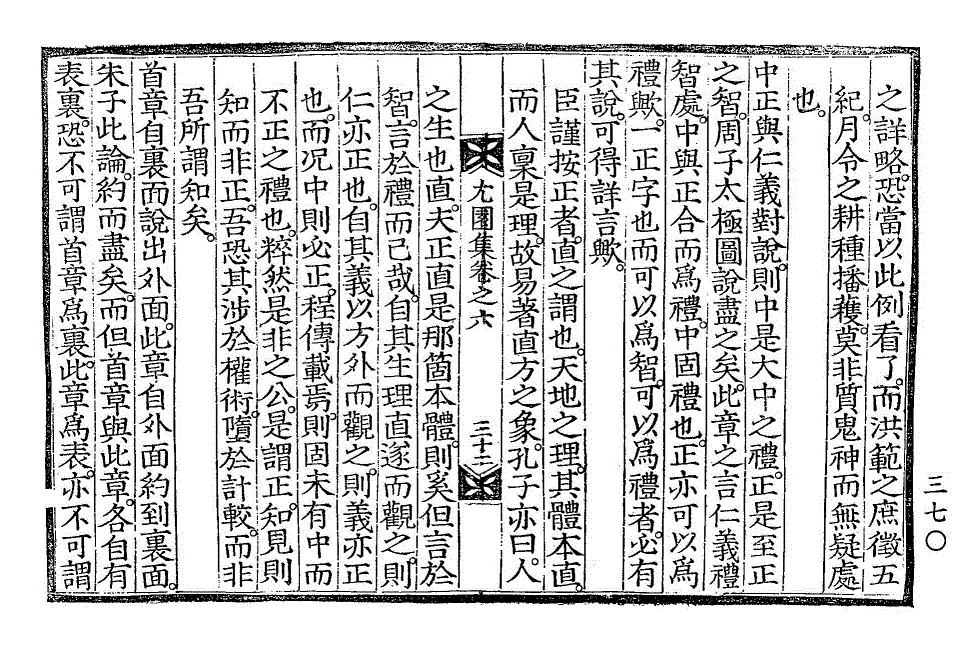 之詳略。恐當以此例看了。而洪範之庶徵五
紀。月令之耕種播穫。莫非質鬼神而無疑處
也。
中正與仁義對說。則中是大中之禮。正是至正
之智。周子太極圖說盡之矣。此章之言仁義禮
智處。中與正合而爲禮。中固禮也。正亦可以爲
禮歟。一正字也而可以爲智。可以爲禮者。必有
其說。可得詳言歟。
臣謹按正者。直之謂也。天地之理。其體本直。
而人稟是理。故易著直方之象。孔子亦曰。人
尤園集卷之六
三十二
之生也直。夫正直是那箇本體。則奚但言於
智。言於禮而已哉。自其生理直遂而觀之。則
仁亦正也。自其義以方外而觀之。則義亦正
也。而况中則必正。程傳載焉。則固未有中而
不正之禮也。粹然是非之公。是謂正知。見則
知而非正。吾恐其涉於權術。墮於計較。而非
吾所謂知矣。
首章自裏而說出外面。此章自外面約到裏面。
朱子此論。約而盡矣。而但首章與此章。各自有
表裏。恐不可謂首章爲裏。此章爲表。亦不可謂
三七〇